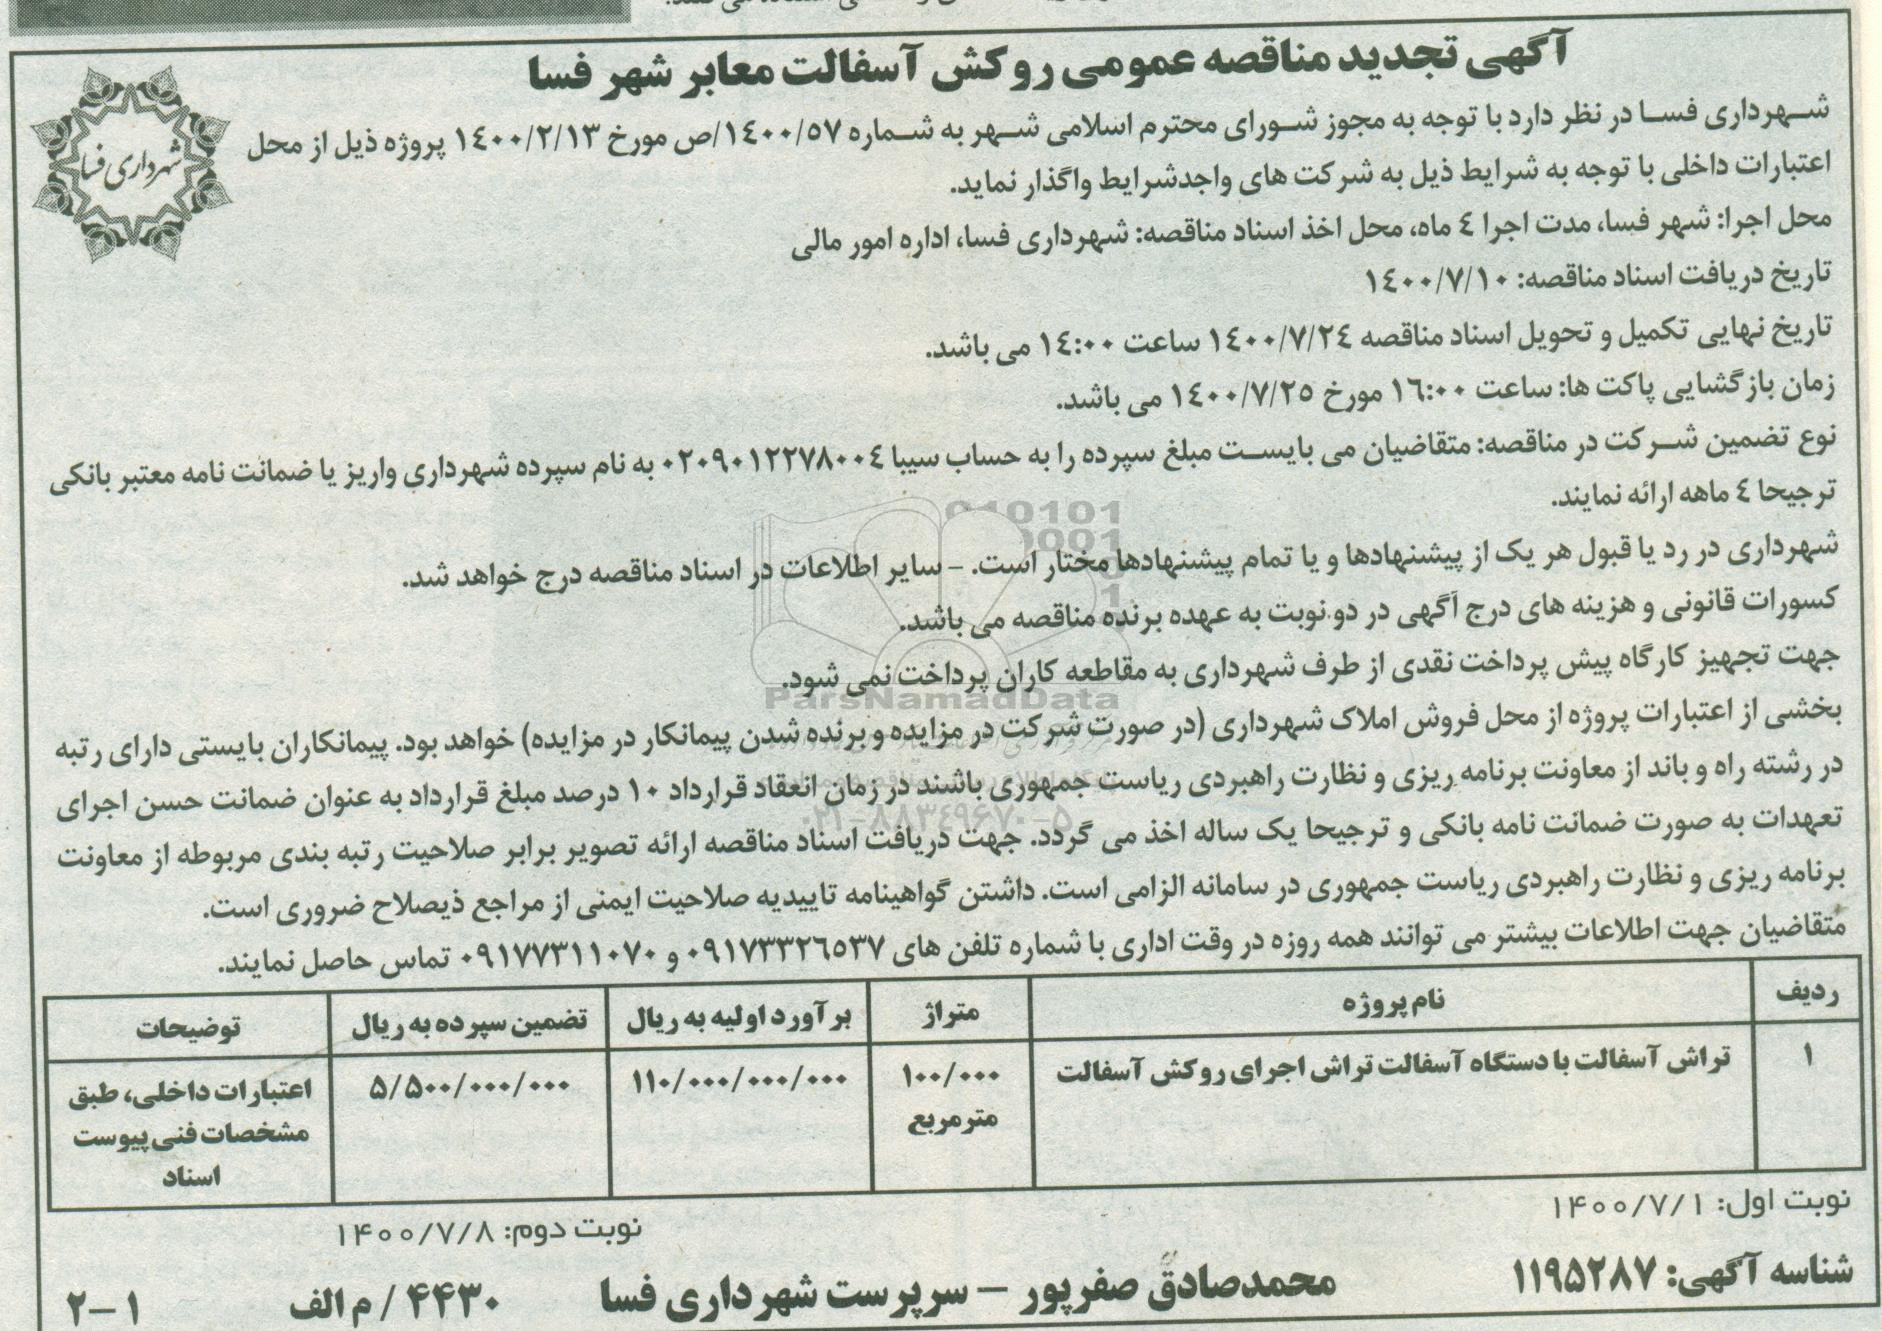 آگهی تجدید مناقصه عمومی روکش آسفالت معابر شهر فسا
شهرداری فسا
شهرداری فسا در نظر دارد با توجه به مجوز شورای محترم اسلامی شهر به شماره ۱۴۰۰/۵۷/ص مورخ ۱۴۰۰/۲/۱۳ پروژه ذیل از محل
اعتبارات داخلی با توجه به شرایط ذیل به شرکت های واجدشرایط واگذار نماید.
محل اجرا: شهر فسا، مدت اجرا ٤ ماه، محل اخذ اسناد مناقصه: شهرداری فسا، اداره امور مالی
تاریخ دریافت اسناد مناقصه: ۱٤۰۰/۷/۱۰
تاریخ نهایی تکمیل و تحویل اسناد مناقصه ۱٤۰۰/۷/۲٤ ساعت ۱٤:۰۰ می باشد.
زمان بازگشایی پاکت ها: ساعت ۱٦:۰۰ مورخ ۱٤۰۰/۷/۲٥ می باشد.
نوع تضمین شرکت در مناقصه: متقاضیان می بایست مبلغ سپرده را به حساب سیبا ۰۲۰۹۰۱۲۲۷۸۰۰٤ به نام سپرده شهرداری واریز یا ضمانت نامه معتبر بانکی
ترجیحا ٤ ماهه ارائه نمایند.
شهرداری در رد یا قبول هر یک از پیشنهادها و یا تمام پیشنهادها مختار است. – سایر اطلاعات در اسناد مناقصه درج خواهد شد.
کسورات قانونی و هزینه های درج آگهی در دو نوبت به عهده برنده مناقصه می باشد.
جهت تجهیز کارگاه پیش پرداخت نقدی از طرف شهرداری به مقاطعه کاران پرداخت نمی شود.
ParsNamadData
بخشی از اعتبارات پروژه از محل فروش املاک شهرداری (در صورت شرکت در مزایده و برنده شدن پیمانکار در مزایده) خواهد بود. پیمانکاران بایستی دارای رتبه
در رشته راه و باند از معاونت برنامه ریزی و نظارت راهبردی ریاست جمهوری باشند در زمان انعقاد قرارداد ۱۰ درصد مبلغ قرارداد به عنوان ضمانت حسن اجرای
۰۲۱-۸۸۳۴۹۶۷۰-۵
تعهدات به صورت ضمانت نامه بانکی و ترجیحا یک ساله اخذ می گردد. جهت دریافت اسناد مناقصه ارائه تصویر برابر صلاحیت رتبه بندی مربوطه از معاونت
برنامه ریزی و نظارت راهبردی ریاست جمهوری در سامانه الزامی است. داشتن گواهینامه تاییدیه صلاحیت ایمنی از مراجع ذیصلاح ضروری است.
متقاضیان جهت اطلاعات بیشتر می توانند همه روزه در وقت اداری با شماره تلفن های ۰۹۱۷۳۳۲٦٥۳۷ و ۰۹۱۷۷۳۱۱۰۷۰ تماس حاصل نمایند.
ردیف نام پروژه متراژ برآورد اولیه به ریال تضمین سپرده به ریال توضیحات
۱ تراش آسفالت با دستگاه آسفالت تراش اجرای روکش آسفالت ۱۰۰/۰۰۰ ۱۱۰/۰۰۰/۰۰۰/۰۰۰ ۵/۵۰۰/۰۰۰/۰۰۰ اعتبارات داخلی، طبق
مترمربع مشخصات فنی پیوست
اسناد
نوبت اول: ۱۴۰۰/۷/۱
نوبت دوم: ۱۴۰۰/۷/۸
شناسه آگهی: ۱۱۹۵۲۸۷ محمدصادق صفرپور – سرپرست شهرداری فسا ۴۴۳۰ / م الف ۱–۲